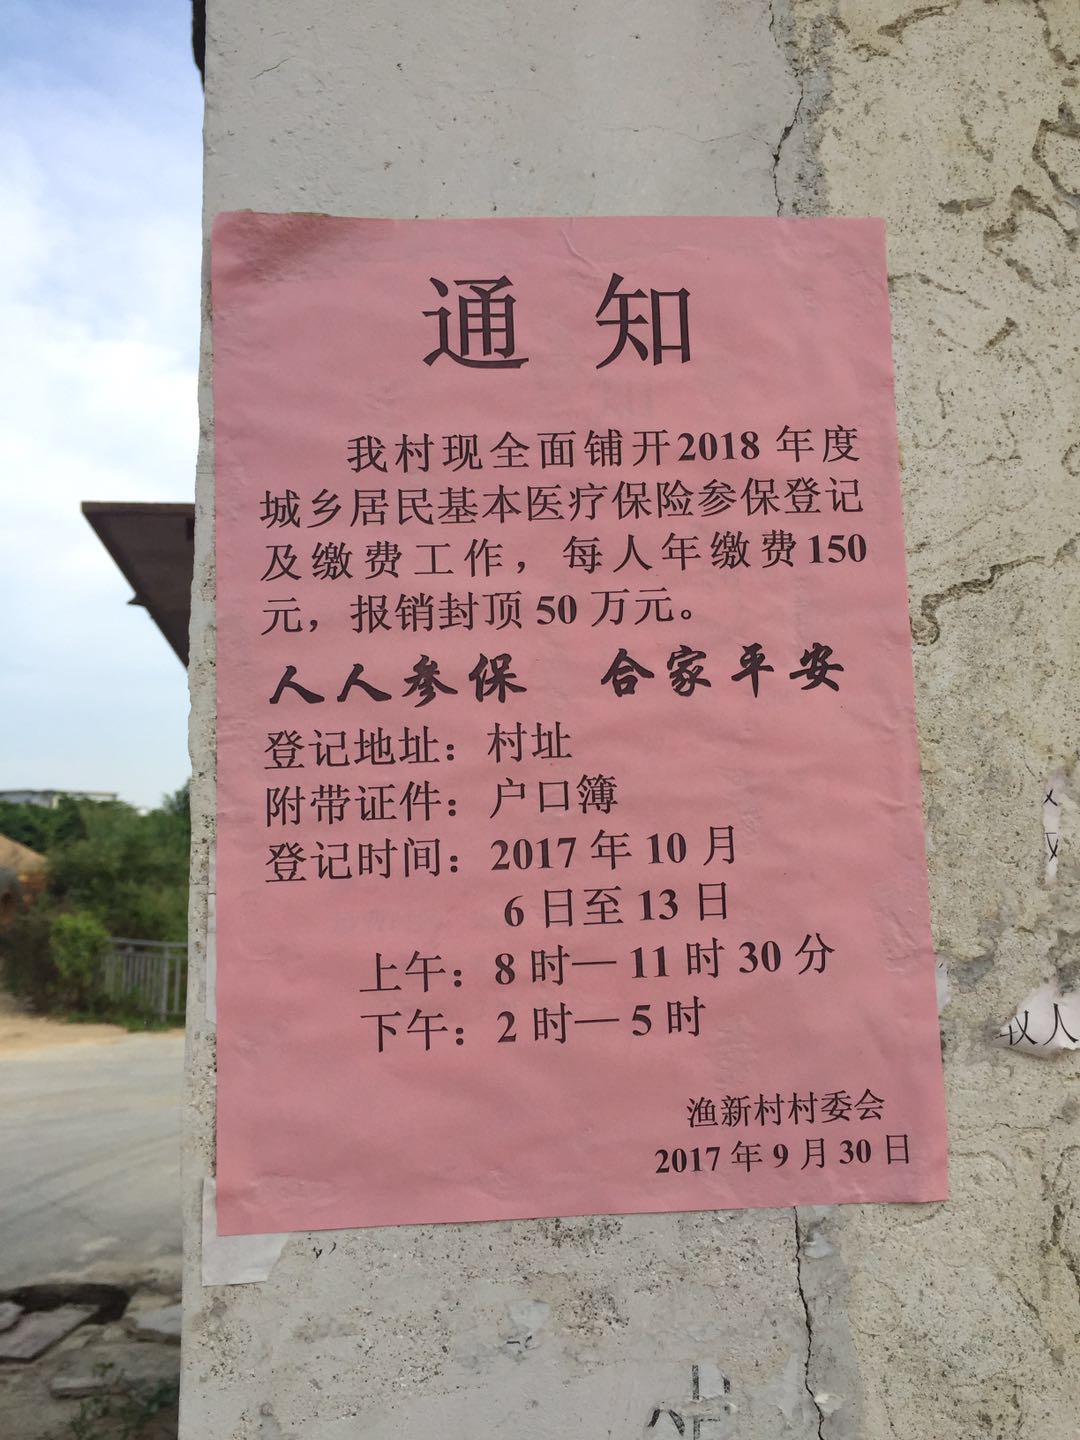 通知
我村现全面铺开2018年度
城乡居民基本医疗保险参保登记
及缴费工作，每人年缴费150
元，报销封顶50万元。
人人参保 合家平安
登记地址：村址
附带证件：户口簿
登记时间：2017年10月
6日至13日
上午：8时—11时30分
下午：2时—5时
渔新村村委会
2017年9月30日
人